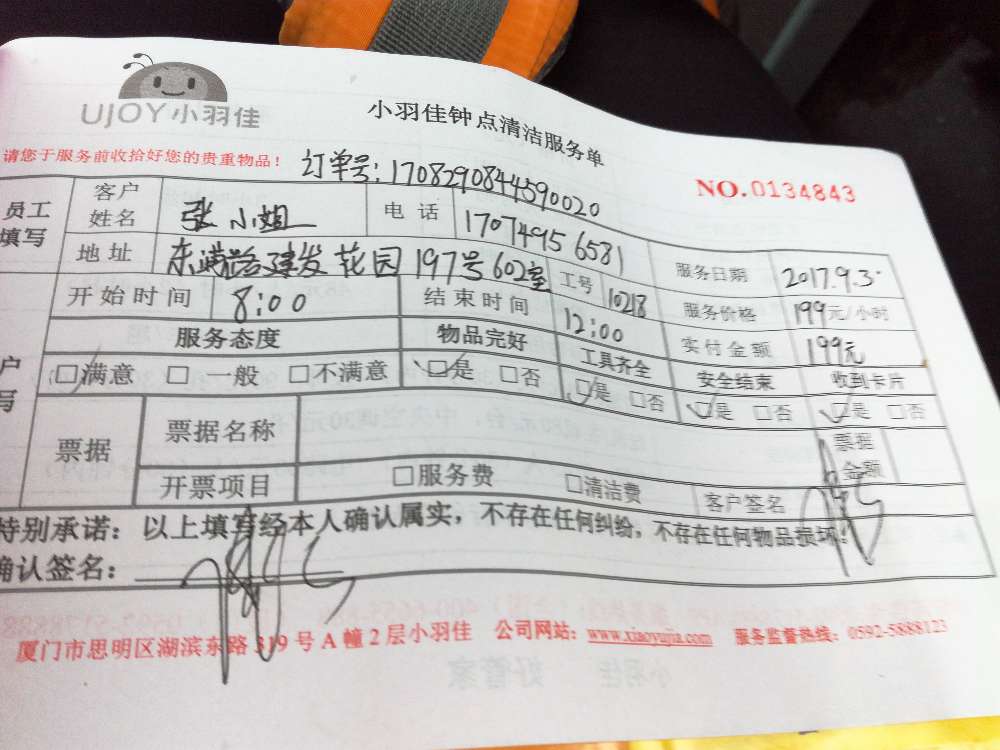 UJOY小羽佳
小羽佳钟点清洁服务单
请您于服务前收拾好您的贵重物品!
订单号:1708290844590020
NO.0134843
员工填写
客户姓名 张小姐 电话 17074956581
地址 东浦路建发花园197号602室 工号 10218 服务日期 2017.9.3
开始时间 8:00 结束时间 12:00 服务价格 199元/小时
实付金额 199元
服务态度 物品完好 工具齐全 安全结束 收到卡片
户写
□满意 □一般 □不满意 □是 □否 □是 □否 □是 □否 □是 □否
票据 票据名称 票据金额
开票项目 □服务费 □清洁费 客户签名
特别承诺:以上填写经本人确认属实,不存在任何纠纷,不存在任何物品损坏!
确认签名:
厦门市思明区湖滨东路319号A幢2层小羽佳 公司网站:www.xiaoyujia.com 服务监督热线:0592-5888123